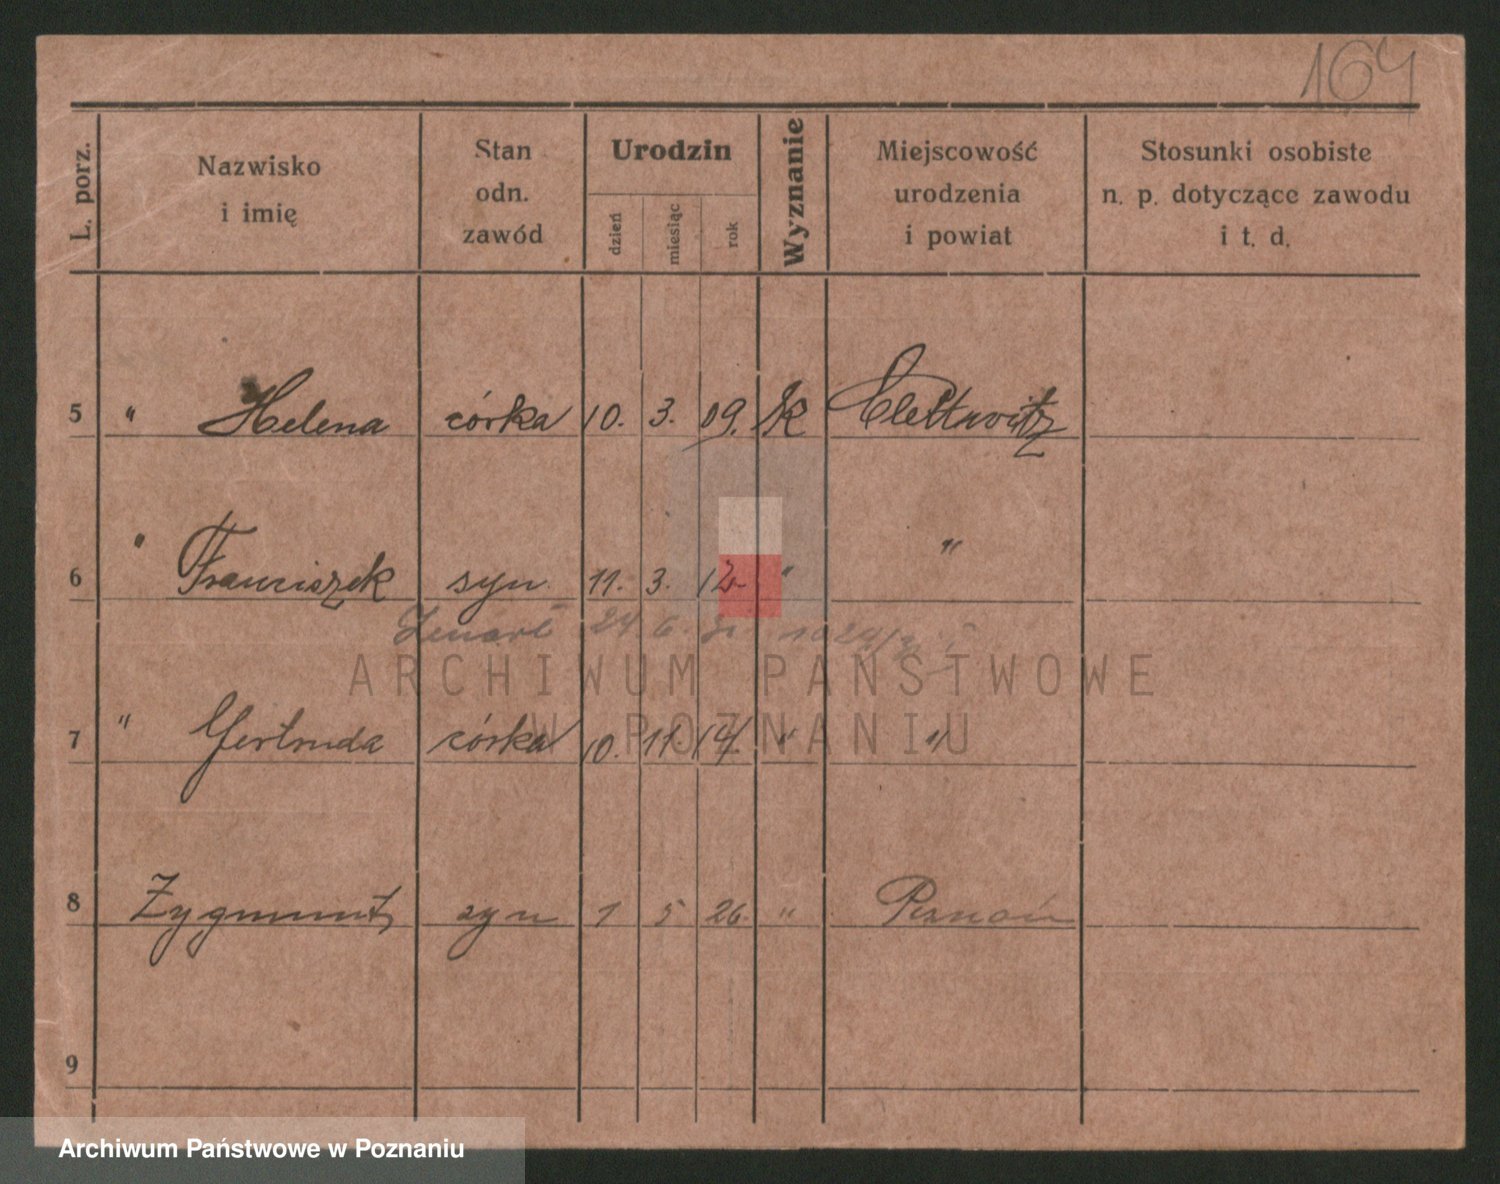 164
L. porz.
Nazwisko
i imię
Stan
odn.
zawód
Urodzin
dzień
miesiąc
rok
Wyznanie
Miejscowość
urodzenia
i powiat
Stosunki osobiste
n. p. dotyczące zawodu
i t. d.
5 " Helena córka 10. 3. 09. k
6 " Franciszek syn 11. 3. 12. " "
Zmarł 24 6.
ARCHIWUM PAŃSTWOWE
W POZNANIU
7 " Gertruda córka 10. 11. 14. " "
8 Zygmunt syn 1 5 26. " Poznań
9
Archiwum Państwowe w Poznaniu